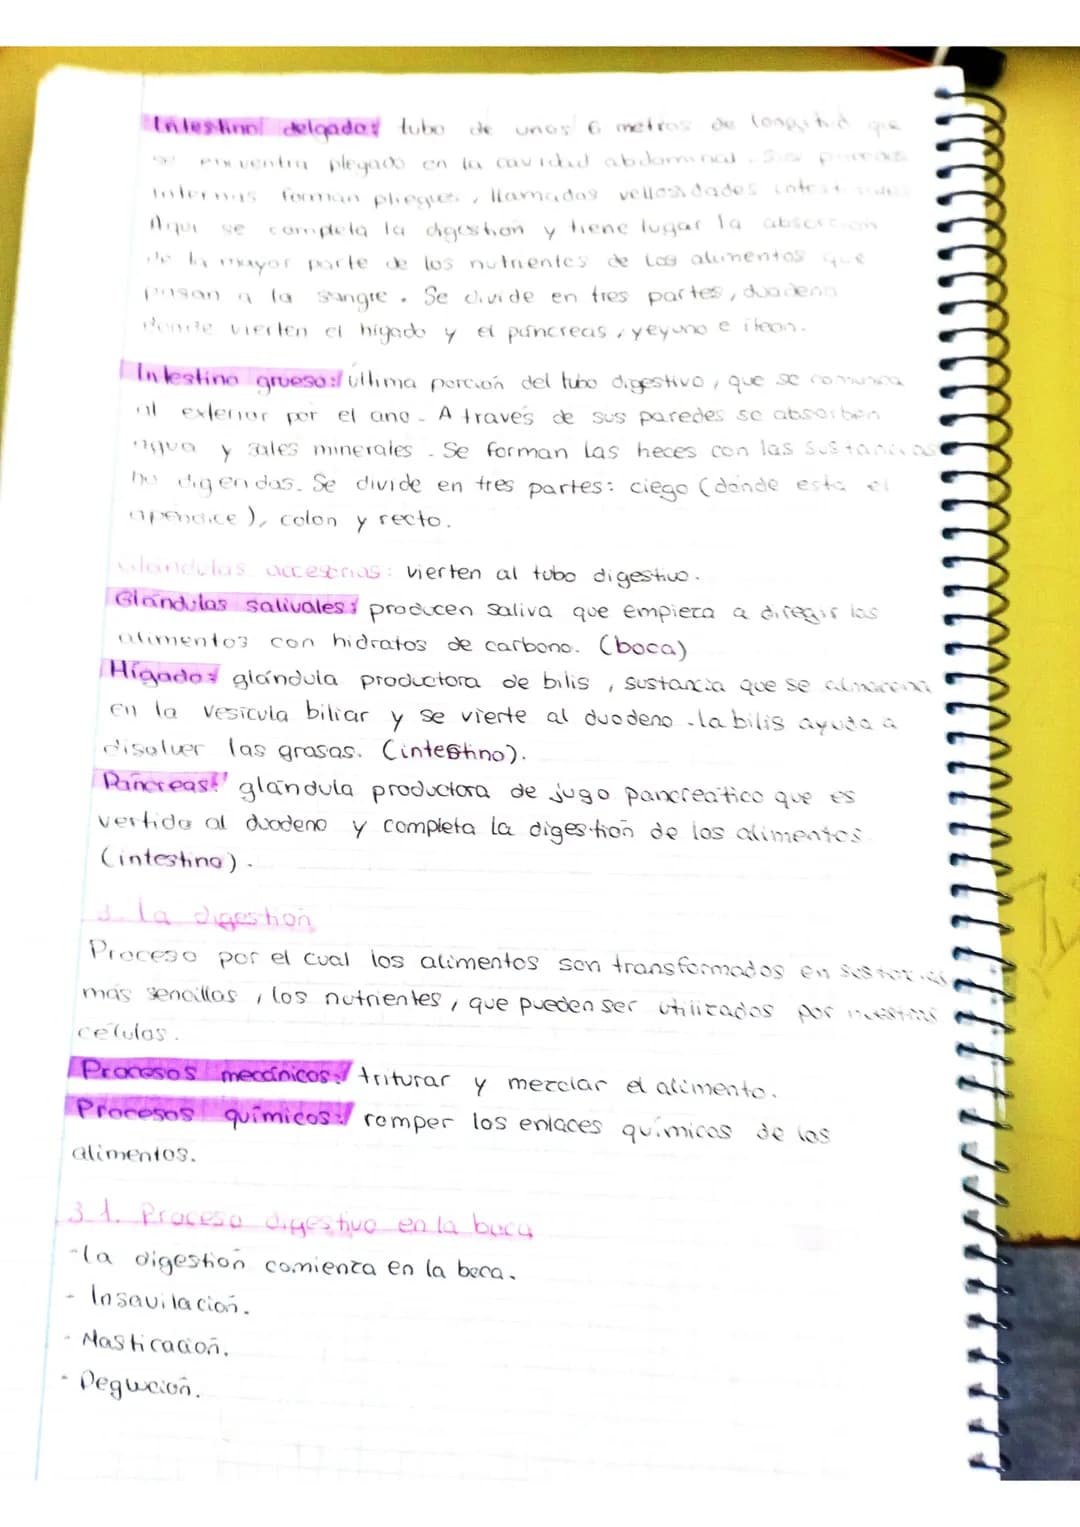 Intestino delgado: tubo de unos 6 metros de longitud que
se encuentra plegado en la cavidad abdominal. Sus paredes
internas forman pliegues, llamadas vellosidades intestinales
Aqui se completa la digestion y tiene lugar la absorcion
de la mayor parte de los nutrientes de los alimentos que
pasan a la sangre. Se divide en tres partes, duodeno
donde vierten el hígado y el páncreas, yeyuno e ileon.
Intestino grueso: última porción del tubo digestivo, que se comunica
al exterior por el ano. A través de sus paredes se absorben
agua y sales minerales. Se forman las heces con las sustancias
no digeridas. Se divide en tres partes: ciego (donde esta el
apendice), colon y recto.
Glandulas accesorias: vierten al tubo digestivo.
Glándulas salivales: producen saliva que empieza a diregir los
alimentos con hidratos de carbono. (boca)
Hígado: glándula productora de bilis, sustancia que se almacena
en la vesícula biliar y se vierte al duodeno. la bilis ayuda a
disolver las grasas. (intestino).
Páncreas: glándula productora de jugo pancreático que es
vertido al duodeno y completa la digestión de los alimentos
(intestino).
3. La digestión
Proceso por el cual los alimentos son transformados en sustancias
más sencillas, los nutrientes, que pueden ser utilizados por nuestras
células.
Procesos mecánicos: triturar y mezclar el alimento.
Procesos químicos: romper los enlaces químicos de los
alimentos.
3.1. Proceso digestivo en la boca
-la digestión comienza en la boca.
- Insavilación.
- Masticación.
- Deglución.